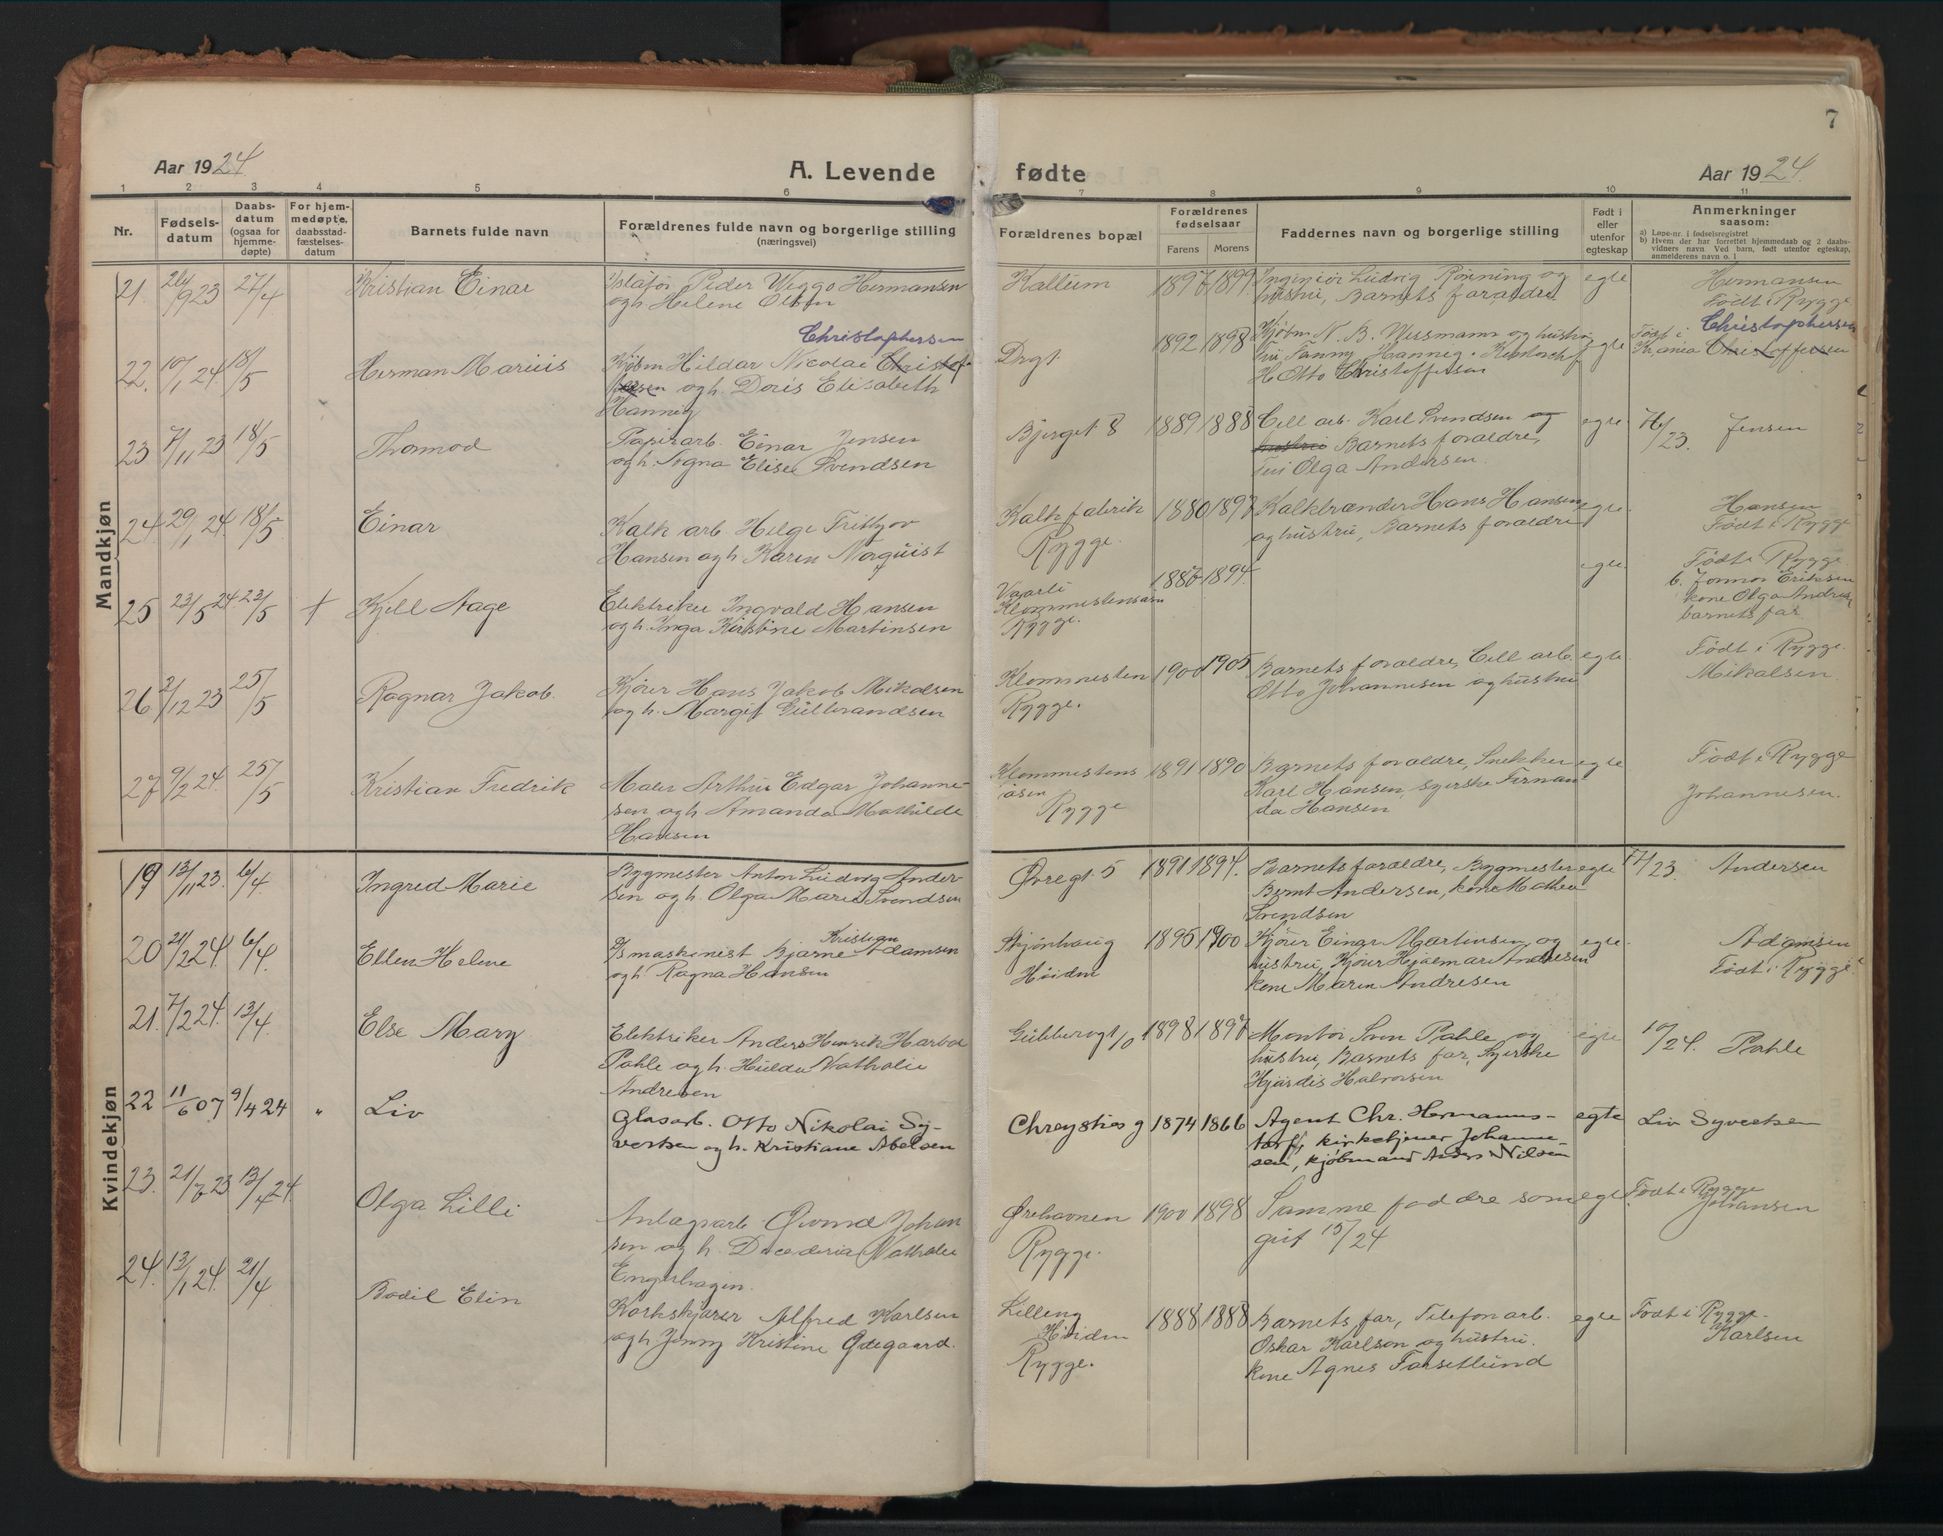 7
Aar 1924
A. Levende
fødte
Aar 1924.
1 2 3 4 5 6 7 8 9 10 11
Nr.
Fødselsdatum
Daabsdatum (ogsaa for hjemmedøpte)
For hjemmedøpte, daabsstadfæstelsesdatum
Barnets fulde navn
Forældrenes fulde navn og borgerlige stilling
(næringsvei)
Forældrenes bopæl
Forældrenes fødselsaar
Farens Morens
Faddernes navn og borgerlige stilling
Født i eller utenfor egteskap
Anmerkninger
saasom:
a) Løpe-nr. i fødselsregistret
b) Hvem der har forrettet hjemmedaab og 2 daabsvidners navn. Ved barn, født utenfor egteskap, anmelderens navn o. l.
Mandkjøn
21. 9 23 27/4 Kristian Einar
Peder Weggo Hermansen
og h. Helene Olsen
Kallum 1897 1899 Ingeniør Ludvig Rønning og
hustru, Barnets forældre
egte
Hermansen
Født i Rygge
22. 10/1 24 18/5 Herman Marius
Christophersen
Kjøbm Hildar Nicolai Christof-
fersen og h. Doris Elisabeth
Hanney
Drgt 1892 1898 Kjøbm N. B. Wessmann og hustru
Fanny Hanney.
H. Otto Christoffersen
egte
Født i Christophersen
Kr.ania Christoffersen
23 7/11 23 18/5 Thormod
Papirarb. Einar Jensen
og h. Signa Elise Svendsen
Bjerget 8 1889 1888 Cell arb. Karl Svendsen og
hustru Barnets forældre,
Olga Andersen.
egte 23. Jensen
24 29/1 24. 18/5. Einar
Kalk arb Helge Fritjov
Hansen og h. Karen Norquist
Kalk fabrik
Rygge.
1880 1897 Kalkbrænder Hans Hansen
og hustru, Barnets forældre
egte
Hansen
Født i Rygge
25 23/5 24 23/5 + Kjell Aage
Elektriker Ingvald Hansen
og h. Inga Kirstine Martinsen
Klommestensåsen
Rygge.
1886 1894.
egte
Født i Rygge.
b. Jormor Eriksen
kone Olga Andresen
barnets far
26 2/12 23 25/5 Ragnar Jakob.
Kjører Hans Jakob Mikalsen
og h. Margit Gulbrandsen
Klommesten
Rygge.
1900 1905 Barnets forældre, Cell arb.
Otto Johannesen og hustru
egte
Født i Rygge.
Mikalsen.
27 9/2 24. 25/5 Kristian Fredrik
Maler Arthur Edgar Johanne-
sen og h. Amanda Mathilde
Hansen
Klommestens
åsen
Rygge
1891 1890 Barnets forældre, Snekker
Karl Hansen, syerske Fernan
da Hansen
egte
Født i Rygge
Johannesen.
Kvindekjøn
19 13/11 23. 6/4 Ingred Marie
Bygmester Anton Ludvig Ander-
sen og h. Olga Marie Svendsen
Øvregt. 5 1891 1894. Barnets forældre, Bygmester
Bernt Andersen, kone Mathea
Svendsen
egte 17/23. Andersen
20 21/2 24. 6/4. Ellen Helene
Kristian
Ismaskinest Bjarne Adamsen
og h Ragna Hansen
Skjønhaug
Høiden
1895 1900 Kjører Einar Martinsen og
hustru, Kjører Hjalmar Andresen
kone Maren Andresen
egte.
Adamsen
Født i Rygge.
21. 7/2 24. 13/4. Else Mary
Elektriker Anders Henrik Harboe
Pahle og h. Hulda Nathalie
Andresen
Gubberogt 10 1898 1897 Montør Sven Pahle og
hustru, Barnets far, Syerske
Hjørdis Halvorsen
egte 10/24. Pahle
22 11/6 07 9/4 24 " Liv
Glasarb. Otto Nikolai Sy-
vertsen og h. Kristiane Abelsen
Chreystiesg 1874 1866 Agent Chr. Hermans-
torf, kirketjener Johanne-
sen, kjøbmand Anders Nilsen
egte Liv Syvertsen
23. 21/7 23 13/4 24. Olga Lilli
Anlægsarb Øivind Johan
sen og h. Nathalie
Engelhagen.
Ørehavnen
Rygge.
1900 1898 Samme faddre som
gut 15/24
egte Født i Rygge
Johansen
24. 13/1 24. 21/4 Bodil Elin
Korkskjærer Alfred Karlsen
og h. Jenny Kristine Ødegaard.
Killeng
Høiden
Rygge.
1888 1888 Barnets far, Telefonarb.
Oskar Karlsen og hustru.
kone Agnes Forsetlund
egte Født i Rygge.
Karlsen